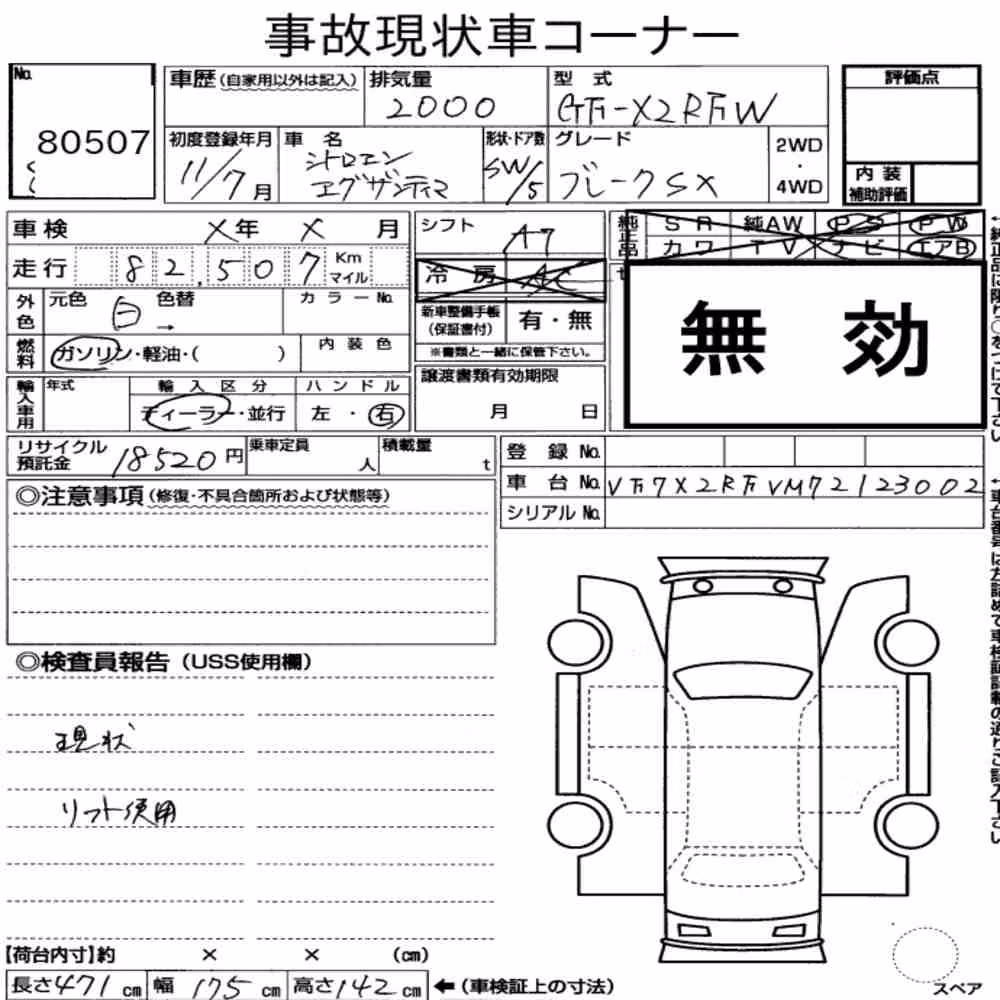 事故現状車コーナー
No. 80507
車歴(自家用以外は記入)
排気量 2000
型式 GF-X2RFW
評価点
初度登録年月 11/7月
車名 シトロエン エグザンティア
形状・ドア数 SW/5
グレード ブレークSX
2WD・4WD
内装補助評価
車検 X年 X月
走行 82,507 Km マイル
外色 元色 白 色替 → カラーNo.
燃料 ガソリン・軽油・( )
内装色
輸入車用 年式 輸入区分 ディーラー・並行 ハンドル 左・右
シフト AT
冷房 AC
新車整備手帳(保証書付) 有・無
※書類と一緒に保管下さい。
譲渡書類有効期限 月 日
純正品 SR 純AW PS PW
カワ TV ナビ エアB
無効
リサイクル預託金 18520円
乗車定員 人
積載量 t
登録No.
車台No. VF7X2RFVM72123002
シリアルNo.
◎注意事項(修復・不具合箇所および状態等)
◎検査員報告(USS使用欄)
現状
リフト使用
【荷台内寸】約 × × (cm)
長さ471cm 幅175cm 高さ142cm ←(車検証上の寸法)
スペア
↓純正品に限り○をつけて下さい
↓車台番号は左詰めで車検証記載の通りご記入下さい